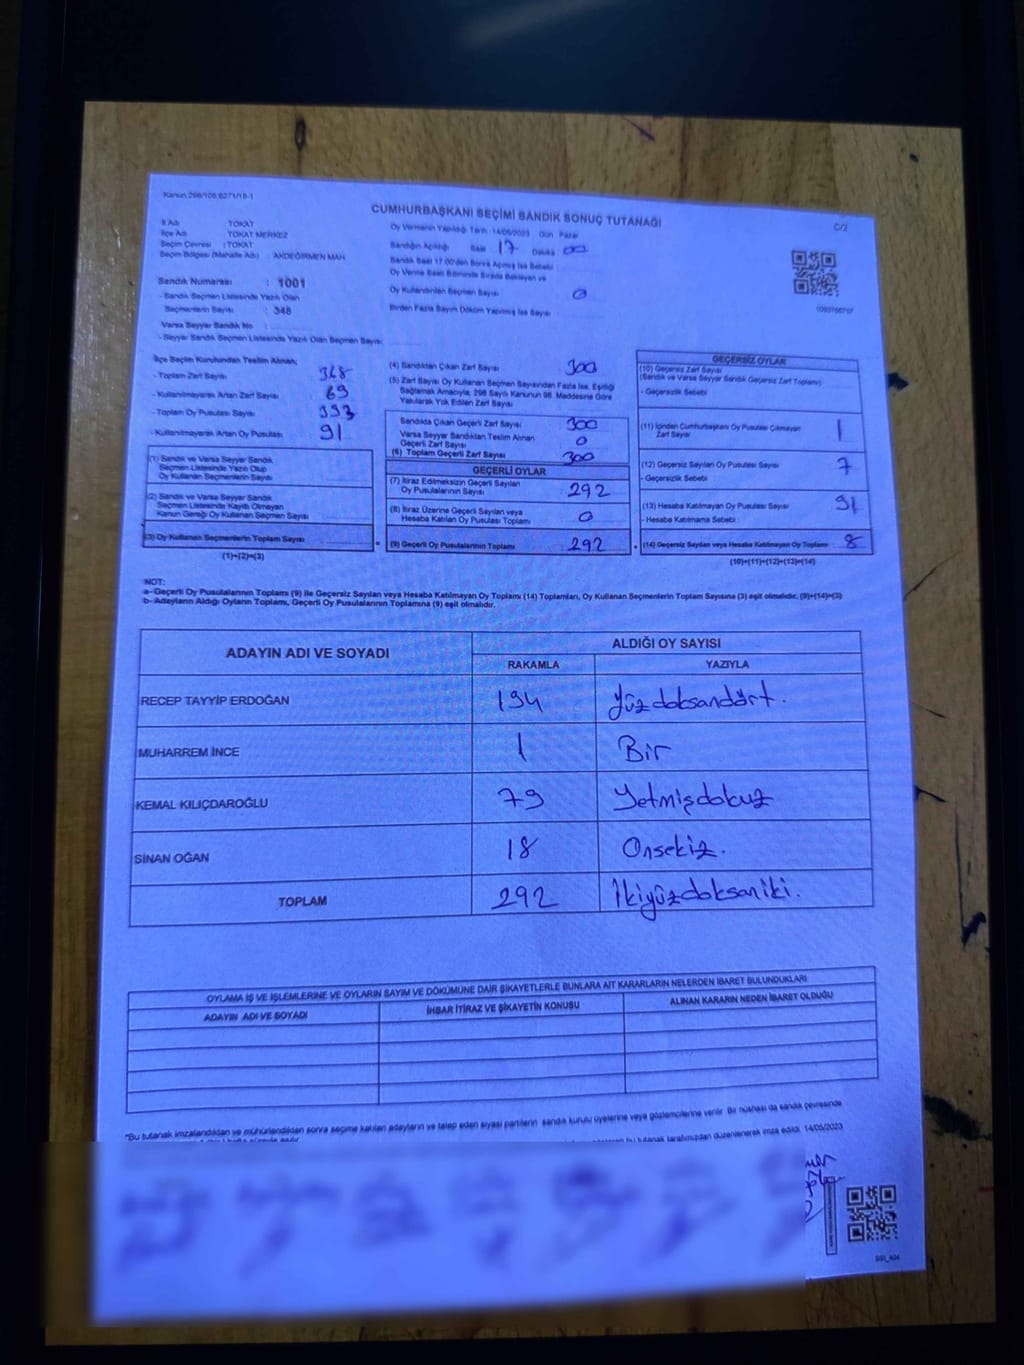 Kanun:298/106;6271/18-1
CUMHURBAŞKANI SEÇİMİ SANDIK SONUÇ TUTANAĞI
C/2
İl Adı : TOKAT
İlçe Adı : TOKAT MERKEZ
Seçim Çevresi : TOKAT
Seçim Bölgesi (Mahalle Adı) : AKDEĞİRMEN MAH
Sandık Numarası : 1001
- Sandık Seçmen Listesinde Yazılı Olan
Seçmenlerin Sayısı : 348
Varsa Seyyar Sandık No :
- Seyyar Sandık Seçmen Listesinde Yazılı Olan Seçmen Sayısı
Oy Vermenin Yapıldığı Tarih 14/05/2023 Gün Pazar
Sandığın Açıldığı Saat 17 Dakika 00
Sandık Saat 17:00'den Sonra Açılmış İse Sebebi
Oy Verme Saati Bitiminde Sırada Bekleyen ve
Oy Kullandırılan Seçmen Sayısı 0
Birden Fazla Sayım Döküm Yapılmış İse Sayısı
İlçe Seçim Kurulundan Teslim Alınan;
- Toplam Zarf Sayısı 368
- Kullanılmayarak Artan Zarf Sayısı 69
- Toplam Oy Pusulası Sayısı 393
- Kullanılmayarak Artan Oy Pusulası 91
(1) Sandık ve Varsa Seyyar Sandık
Seçmen Listesinde Yazılı Olup
Oy Kullanan Seçmenlerin Sayısı
(2) Sandık ve Varsa Seyyar Sandık
Seçmen Listesinde Kayıtlı Olmayan
Kanun Gereği Oy Kullanan Seçmen Sayısı
(3) Oy Kullanan Seçmenlerin Toplam Sayısı
(1)+(2)=(3)
(4) Sandıktan Çıkan Zarf Sayısı 300
(5) Zarf Sayısı Oy Kullanan Seçmen Sayısından Fazla İse, Eşitliği
Sağlamak Amacıyla; 298 Sayılı Kanunun 98. Maddesine Göre
Yakılarak Yok Edilen Zarf Sayısı
Sandıkta Çıkan Geçerli Zarf Sayısı 300
Varsa Seyyar Sandıktan Teslim Alınan
Geçerli Zarf Sayısı 0
(6) Toplam Geçerli Zarf Sayısı 300
GEÇERLİ OYLAR
(7) İtiraz Edilmeksizin Geçerli Sayılan
Oy Pusulalarının Sayısı 292
(8) İtiraz Üzerine Geçerli Sayılan veya
Hesaba Katılan Oy Pusulası Toplamı 0
(9) Geçerli Oy Pusulalarının Toplamı 292
GEÇERSİZ OYLAR
(10) Geçersiz Zarf Sayısı
(Sandık ve Varsa Seyyar Sandık Geçersiz Zarf Toplamı)
- Geçersizlik Sebebi
(11) İçinden Cumhurbaşkanı Oy Pusulası Çıkmayan
Zarf Sayısı 1
(12) Geçersiz Sayılan Oy Pusulası Sayısı 7
- Geçersizlik Sebebi
(13) Hesaba Katılmayan Oy Pusulası Sayısı 91
- Hesaba Katılmama Sebebi
(14) Geçersiz Sayılan veya Hesaba Katılmayan Oy Toplamı 8
(10)+(11)+(12)+(13)=(14)
NOT:
a- Geçerli Oy Pusulalarının Toplamı (9) ile Geçersiz Sayılan veya Hesaba Katılmayan Oy Toplamı (14) Toplamları, Oy Kullanan Seçmenlerin Toplam Sayısına (3) eşit olmalıdır. (9)+(14)=(3)
b- Adayların Aldığı Oyların Toplamı, Geçerli Oy Pusulalarının Toplamına (9) eşit olmalıdır.
ADAYIN ADI VE SOYADI
ALDIĞI OY SAYISI
RAKAMLA YAZIYLA
RECEP TAYYİP ERDOĞAN 194 Yüzdoksandört.
MUHARREM İNCE 1 Bir
KEMAL KILIÇDAROĞLU 79 Yetmişdokuz
SİNAN OĞAN 18 Onsekiz.
TOPLAM 292 İkiyüzdoksaniki.
OYLAMA İŞ VE İŞLEMLERİNE VE OYLARIN SAYIM VE DÖKÜMÜNE DAİR ŞİKAYETLERLE BUNLARA AİT KARARLARIN NELERDEN İBARET BULUNDUKLARI
ADAYIN ADI VE SOYADI İHBAR İTİRAZ VE ŞİKAYETİN KONUSU ALINAN KARARIN NEDEN İBARET OLDUĞU
*Bu tutanak imzalandıktan ve mühürlendikten sonra seçime katılan adayların ve talep eden siyasi partilerin sandık kurulu üyelerine veya gözlemcilerine verilir. Bir nüshası da sandık çevresinde
bu tutanak tarafımızdan düzenlenerek imza edildi. 14/05/2023